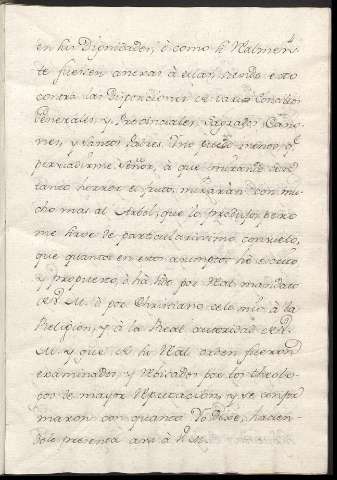 en sus Dignidades, ò como si Realmen
te fuesen anexas à ellas, siendo esto
contra las Disposiciones de varios Concilios
Generales, y Provinciales, Sagrados Cano
nes, y Santos Padres. Uno puedo menos q.
persuadirme, Señor, à que mirando con
tanto horror el fruto, mirarán con mu
cho mas al Arbol, que lo produjo, pero
me sirve de particularisimo consuelo,
que quanto en estos asumptos hè escrito
y propuesto, ò hà sido por Real mandato
de V. M. ò por Christiano celo mio, à la
Religion, y à la Real autoridad de V.
M. y que de su Real orden fueron
examinados, y Revisados por los Theolo
gos de mayor Reputacion, y se confor
maron con quanto Yo Dixe, hacien
dolo presente asi à V. M.